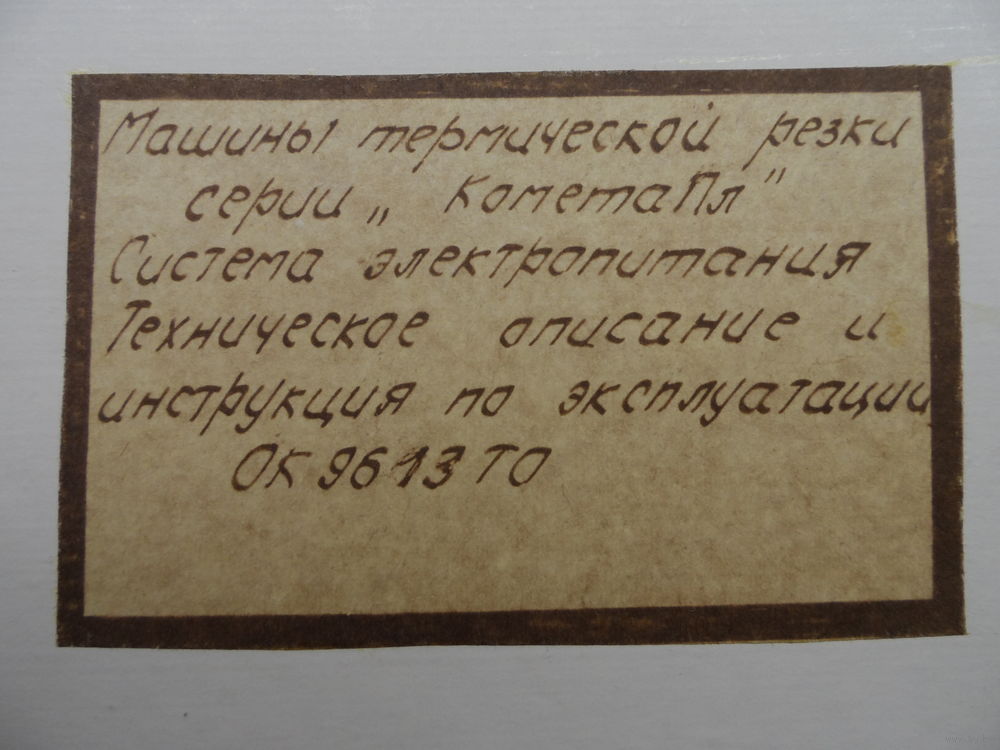 Машины термической резки
серии „ КометаПл"
Система электропитания
Техническое описание и
инструкция по эксплуатации
ОК 9613 ТО